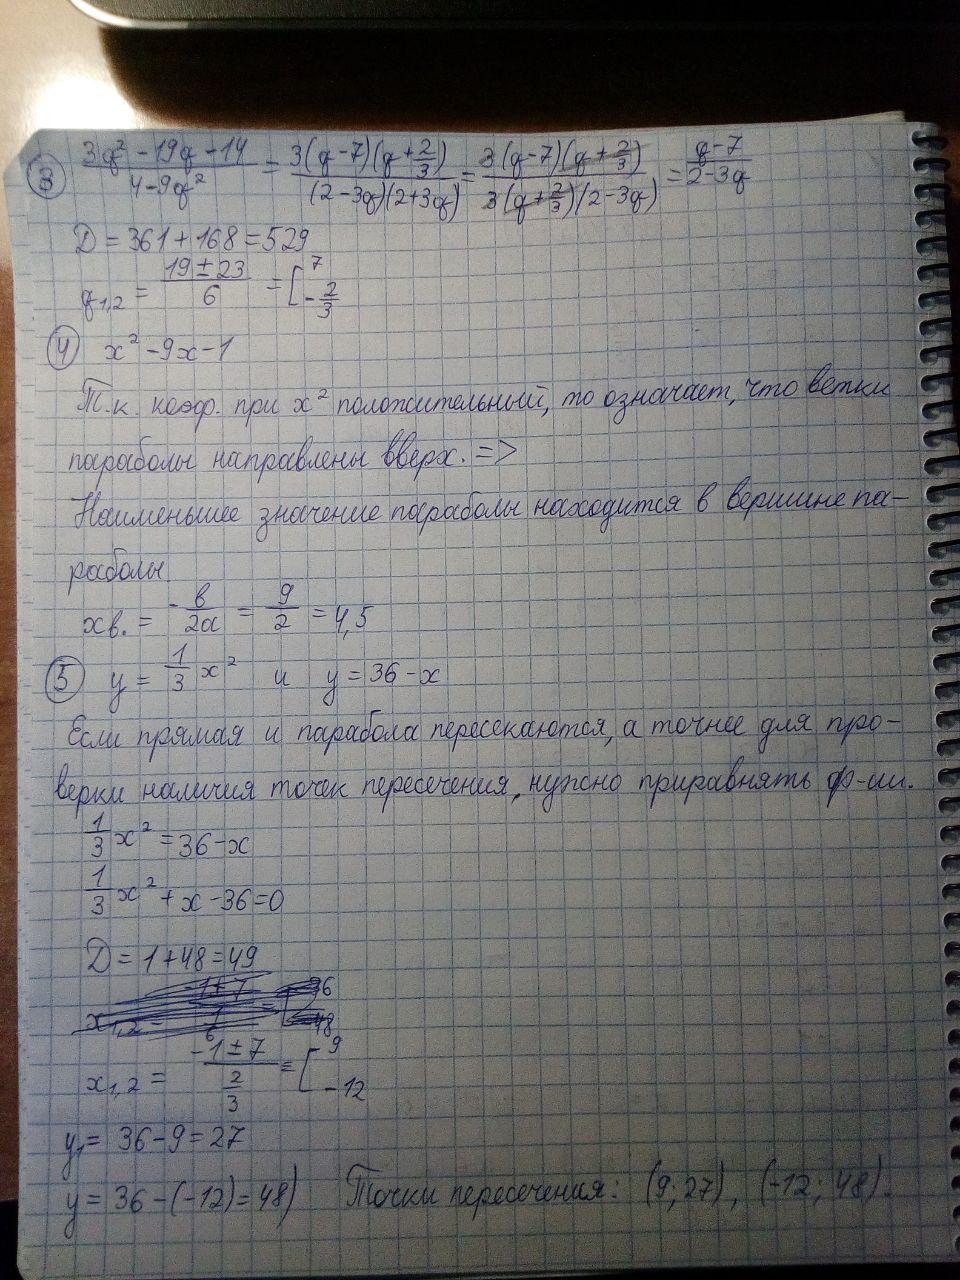 ③ (3q² - 19q - 14)/(4 - 9q²) = 3(q - 7)(q + 2/3)/((2 - 3q)(2 + 3q)) = 3(q - 7)(q + 2/3)/(3(q + 2/3)(2 - 3q)) = (q - 7)/(2 - 3q)
D = 361 + 168 = 529
q₁,₂ = (19 ± 23)/6 = [7; -2/3
④ x² - 9x - 1
Т.к. коэф. при x² положительный, то означает, что ветки
параболы направлены вверх. =>
Наименьшее значение параболы находится в вершине па-
раболы
xв. = -в/2a = 9/2 = 4,5
⑤ y = 1/3 x² и y = 36 - x
Если прямая и парабола пересекаются, а точнее для про-
верки наличия точек пересечения, нужно приравнять ф-ии.
1/3 x² = 36 - x
1/3 x² + x - 36 = 0
D = 1 + 48 = 49
x₁,₂ = (-1 ± 7)/(2/3) = [9; -12
y₁ = 36 - 9 = 27
y = 36 - (-12) = 48) Точки пересечения: (9; 27), (-12; 48).